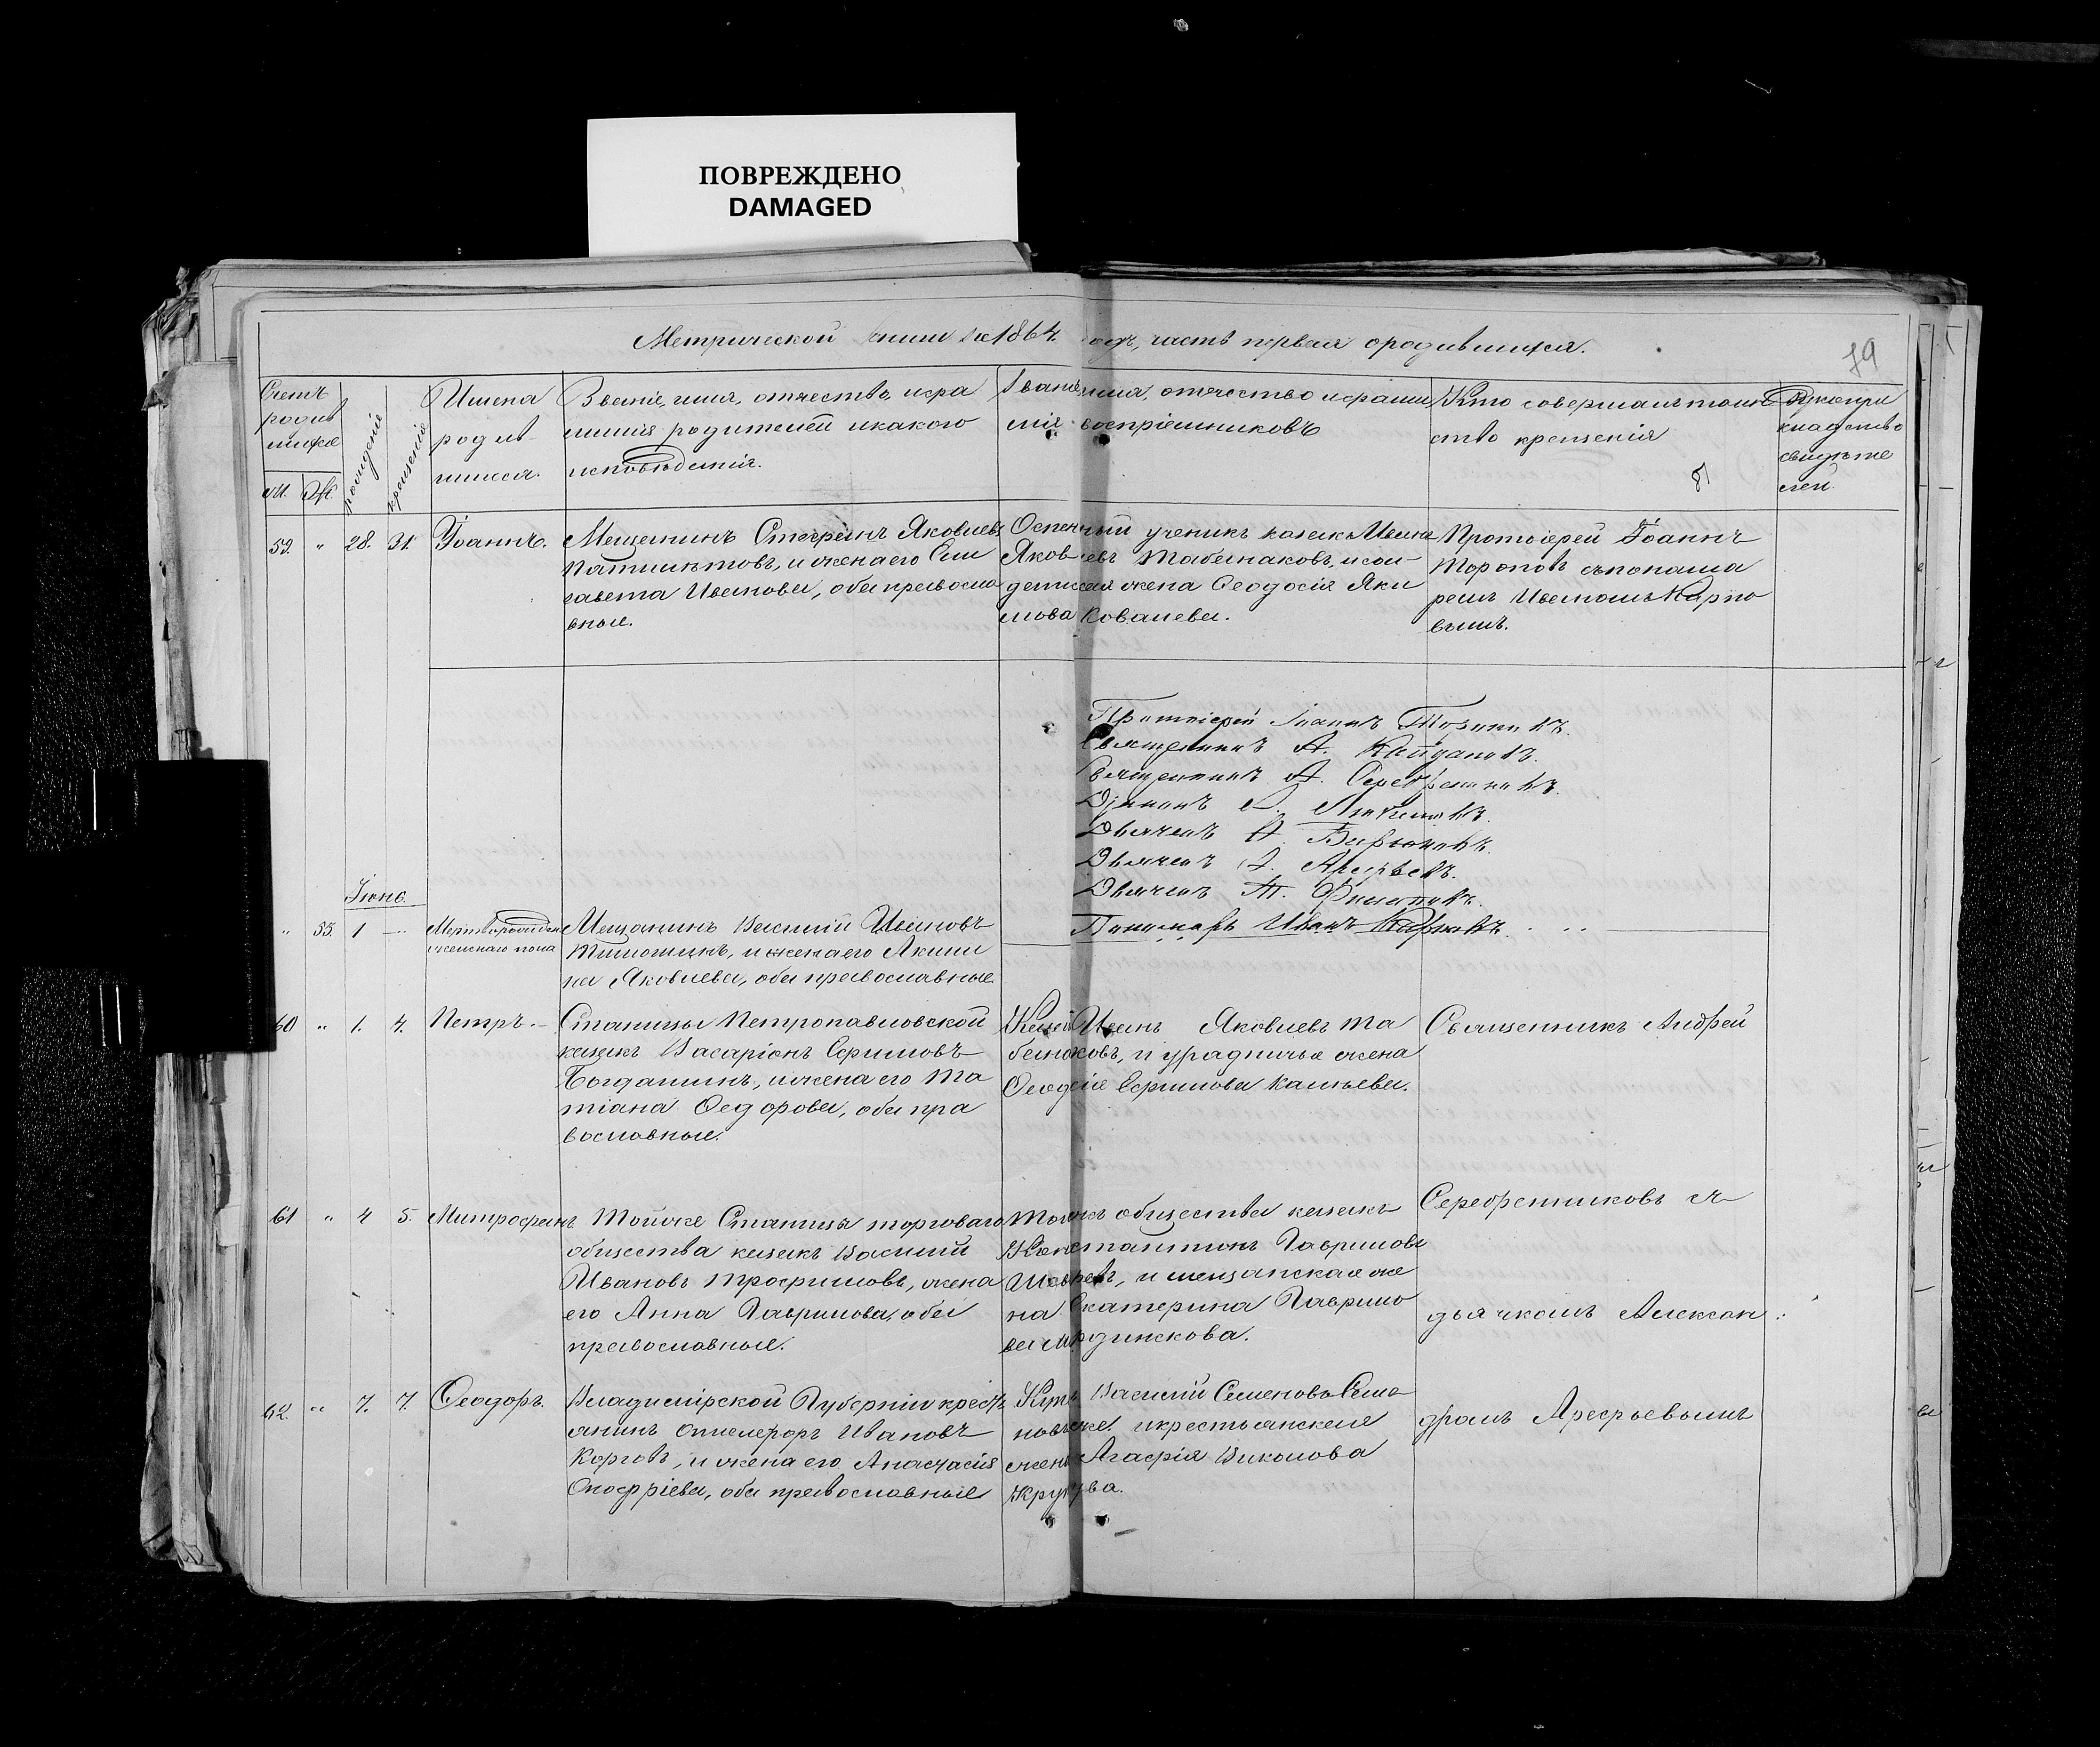 ПОВРЕЖДЕНО
DAMAGED
Метрической книги на 1864. годъ, часть первая ородившихся.
79
Счетъ
родив
шихся
м. Ж.
рожденiе
крещенiе
Имена
родив-
шихся.
Званiе, имя, отчество, ифа
милiя родителей икакого
исповѣданiя.
Званiе, имя, отчество ифами
лiя воспрiемниковъ
Кто совершалъ таин
ство крещенiя
Рукопри
кладство
свидѣте
лей.
59. " 28. 31. Іоаннъ.
Мещанинъ Стефанъ Яковлевъ
, и жена его Ели
завета Иванова, оба правосла
вные.
Оспенный ученикъ казакъ Иванъ
Яковлевъ Табанаковъ, и сол-
датская жена Ѳеодосiя Яки
мова Ковалева.
Протоiерей Іоаннъ
Тороповъ съ понама
ремъ Иваномъ Карпо
вымъ.
Протоiерей Іоаннъ Тороповъ.
Священникъ А. Кайдаловъ.
Священникъ А. Серебрениковъ.
Дiаконъ
Дьячекъ А. Бирюковъ.
Дьячекъ А. Арефьевъ.
Дьячекъ Т. Филиповъ.
Пономарь Иванъ Карповъ.
Іюнь.
" 55. 1 — Мертворожден
женскаго пола
Мещанинъ Василiй Ивановъ
, и жена его Акили
на Яковлева, оба православные.
60 " 1. 4. Петръ. —
Станицы Петропавловской
казакъ Васарiонъ Ефимовъ
Богдашинъ, и жена его Та
тiана Ѳедорова, оба пра
вославные.
Казакъ Иванъ Яковлевъ Та
банаковъ, и урядничья жена
Ѳеодосiя Ефимова
Священникъ Андрей
61 " 4 5. Митрофанъ
Тойже Станицы торговаго
общества казакъ Василiй
Ивановъ Трофимовъ, жена
его Анна Гаврилова, оба
православные.
Тогожъ общества казакъ
Константинъ Гавриловъ
, и мещанская же
на Екатерина Гаврило
ва
Серебренниковъ съ
дьячкомъ Алексан
62. " 7. 7. Ѳеодоръ.
Владимiрской Губернiи крестъ
янинъ Ивановъ
, и жена его Анастасiя
Онофрiева, оба православные
Василiй Семеновъ
и крестьянская
жена Агафiя
дромъ Арефьевымъ